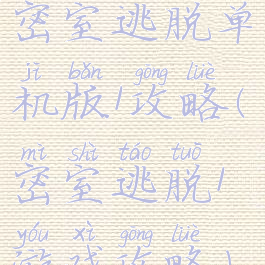 密室逃脱单
jī bǎn gōng lüè
机版1攻略(
mì shì táo tuō
密室逃脱1
yóu xì gōng lüè
游戏攻略)